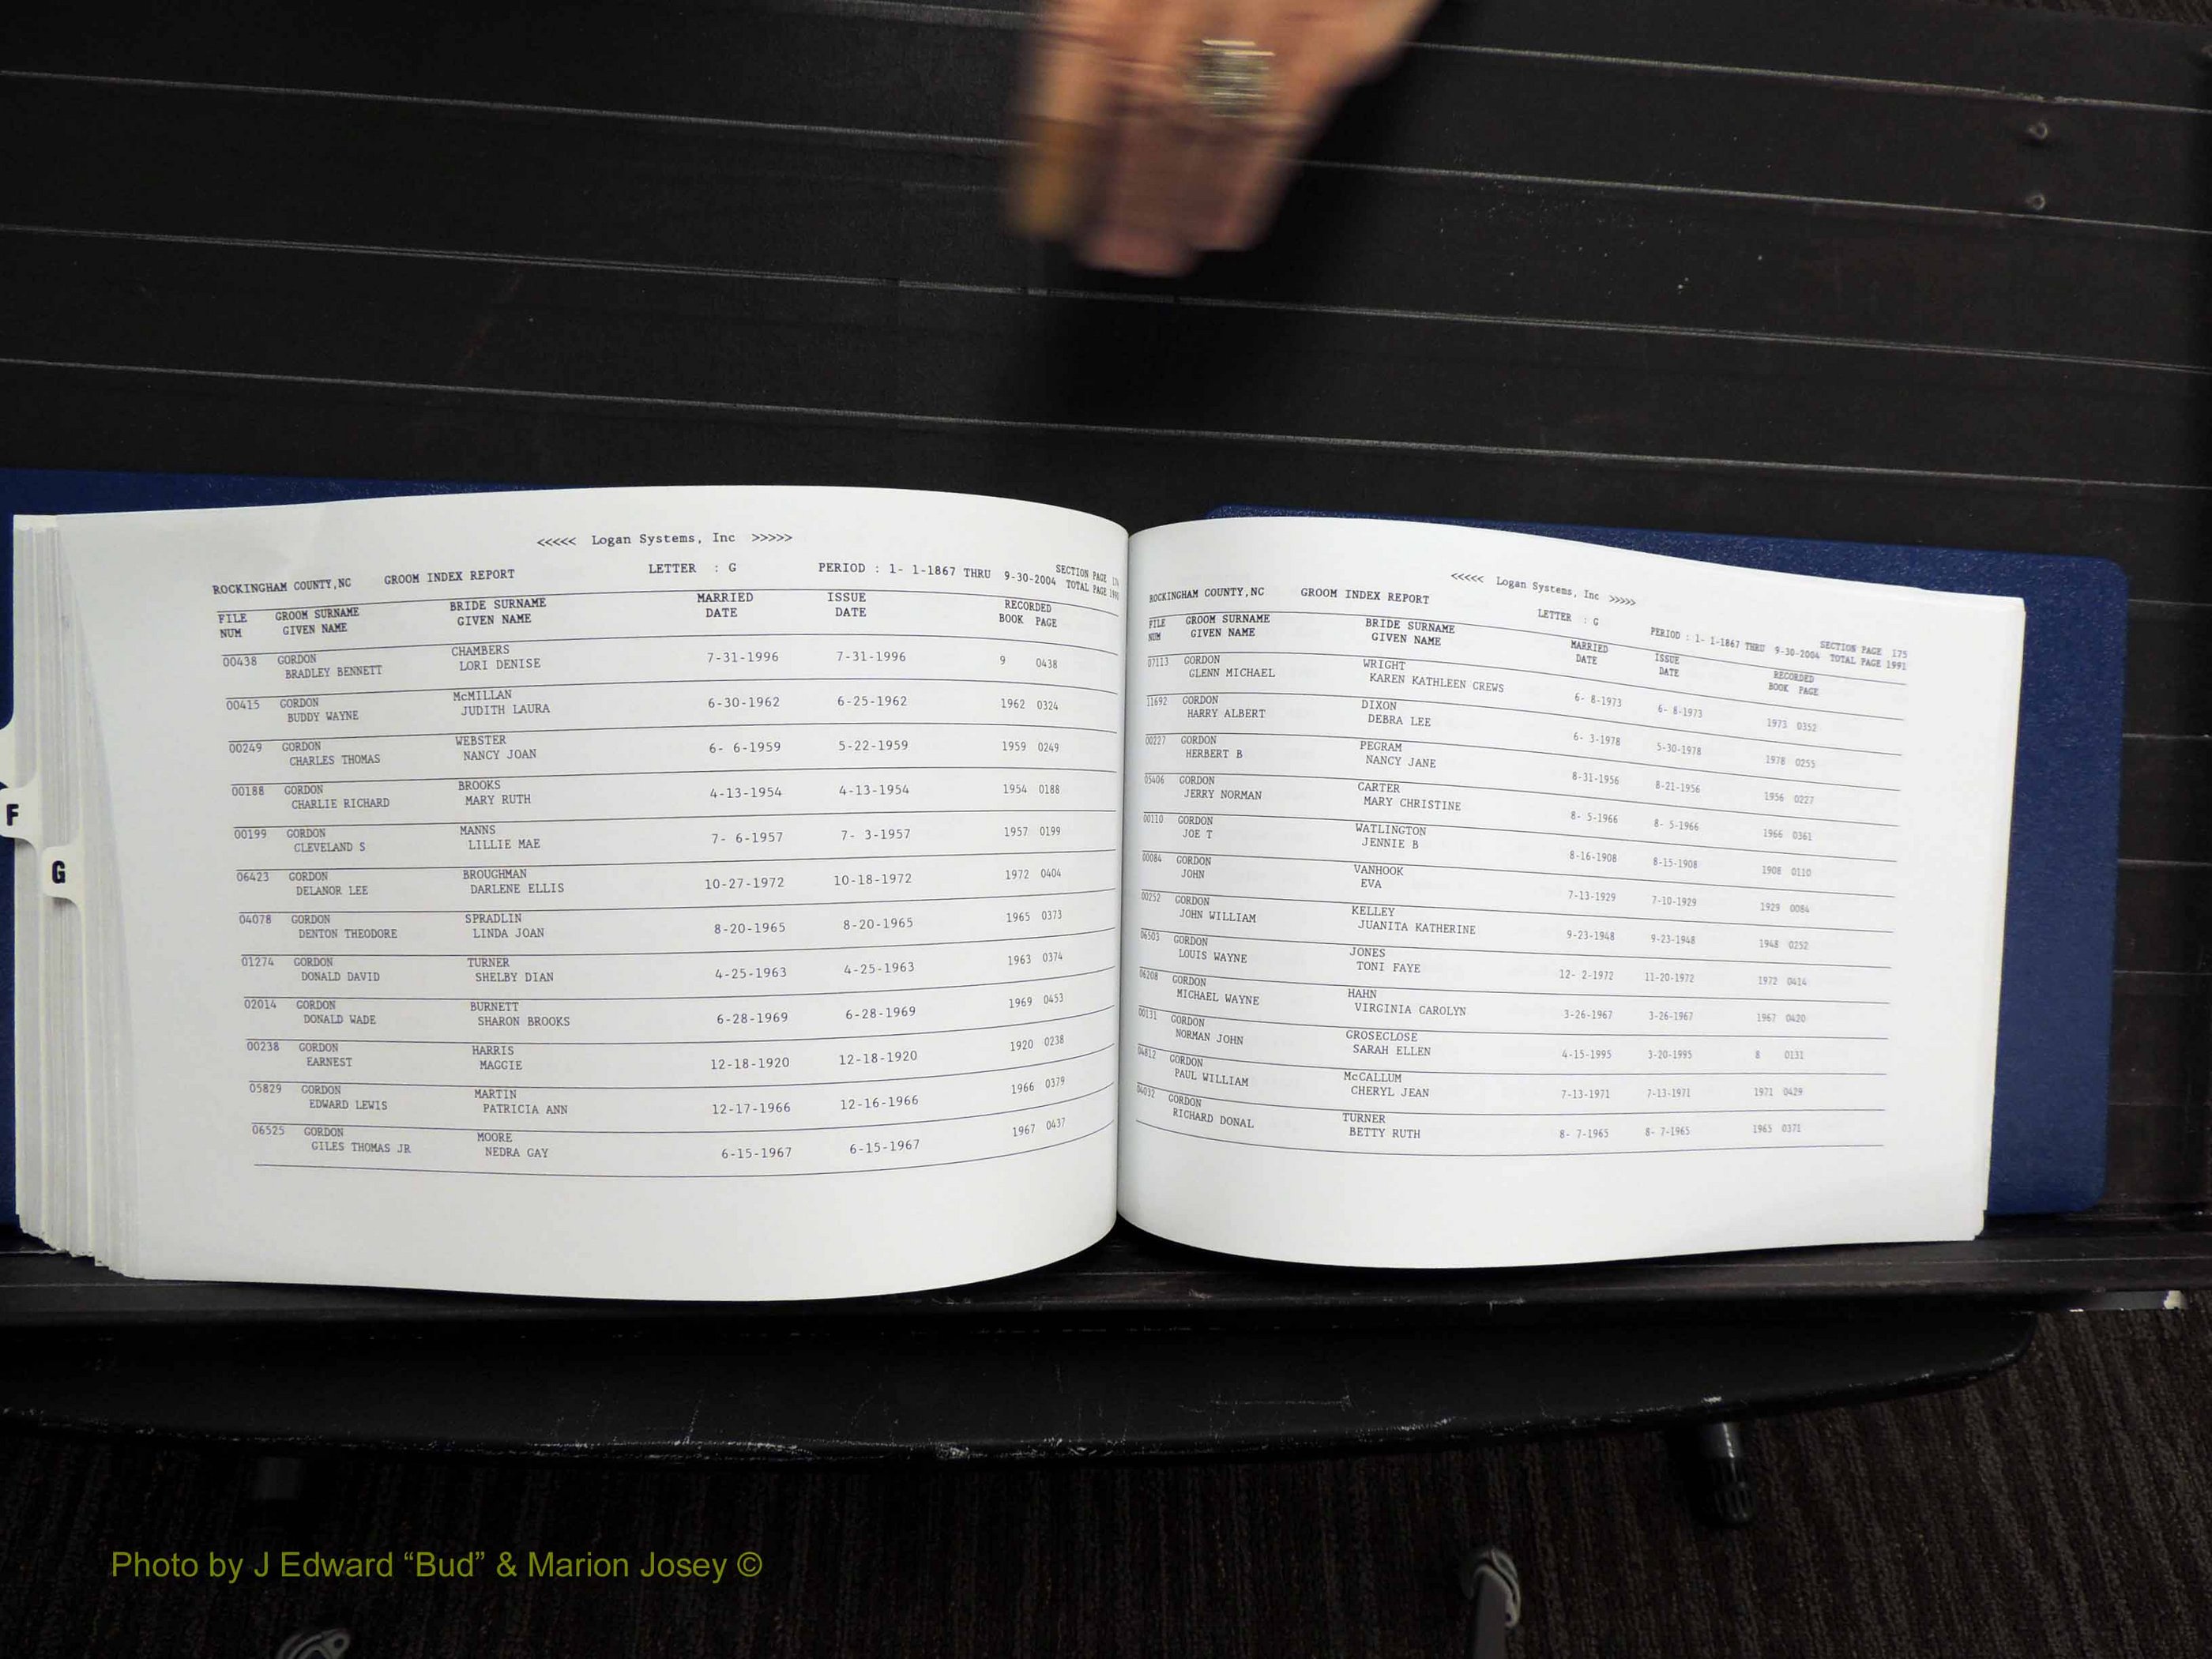 <<<<< Logan Systems, Inc >>>>>
ROCKINGHAM COUNTY,NC GROOM INDEX REPORT LETTER : G PERIOD : 1- 1-1867 THRU 9-30-2004 SECTION PAGE
TOTAL PAGE 1991
FILE GROOM SURNAME BRIDE SURNAME MARRIED ISSUE RECORDED
NUM GIVEN NAME GIVEN NAME DATE DATE BOOK PAGE
00438 GORDON CHAMBERS 7-31-1996 7-31-1996 9 0438
BRADLEY BENNETT LORI DENISE
00415 GORDON McMILLAN 6-30-1962 6-25-1962 1962 0324
BUDDY WAYNE JUDITH LAURA
00249 GORDON WEBSTER 6- 6-1959 5-22-1959 1959 0249
CHARLES THOMAS NANCY JOAN
00188 GORDON BROOKS 4-13-1954 4-13-1954 1954 0188
CHARLIE RICHARD MARY RUTH
00199 GORDON MANNS 7- 6-1957 7- 3-1957 1957 0199
CLEVELAND S LILLIE MAE
06423 GORDON BROUGHMAN 10-27-1972 10-18-1972 1972 0404
DELANOR LEE DARLENE ELLIS
04078 GORDON SPRADLIN 8-20-1965 8-20-1965 1965 0373
DENTON THEODORE LINDA JOAN
01274 GORDON TURNER 4-25-1963 4-25-1963 1963 0374
DONALD DAVID SHELBY DIAN
02014 GORDON BURNETT 6-28-1969 6-28-1969 1969 0453
DONALD WADE SHARON BROOKS
00238 GORDON HARRIS 12-18-1920 12-18-1920 1920 0238
EARNEST MAGGIE
05829 GORDON MARTIN 12-17-1966 12-16-1966 1966 0379
EDWARD LEWIS PATRICIA ANN
06525 GORDON MOORE 6-15-1967 6-15-1967 1967 0437
GILES THOMAS JR NEDRA GAY
F
G
<<<<< Logan Systems, Inc >>>>>
ROCKINGHAM COUNTY,NC GROOM INDEX REPORT LETTER : G PERIOD : 1- 1-1867 THRU 9-30-2004 SECTION PAGE 175
TOTAL PAGE 1991
FILE GROOM SURNAME BRIDE SURNAME MARRIED ISSUE RECORDED
NUM GIVEN NAME GIVEN NAME DATE DATE BOOK PAGE
07113 GORDON WRIGHT 6- 8-1973 6- 8-1973 1973 0352
GLENN MICHAEL KAREN KATHLEEN CREWS
11692 GORDON DIXON 6- 3-1978 5-30-1978 1978 0255
HARRY ALBERT DEBRA LEE
00227 GORDON PEGRAM 8-31-1956 8-21-1956 1956 0227
HERBERT B NANCY JANE
05406 GORDON CARTER 8- 5-1966 8- 5-1966 1966 0361
JERRY NORMAN MARY CHRISTINE
00110 GORDON WATLINGTON 8-16-1908 8-15-1908 1908 0110
JOE T JENNIE B
00084 GORDON VANHOOK 7-13-1929 7-10-1929 1929 0084
JOHN EVA
00252 GORDON KELLEY 9-23-1948 9-23-1948 1948 0252
JOHN WILLIAM JUANITA KATHERINE
06503 GORDON JONES 12- 2-1972 11-20-1972 1972 0414
LOUIS WAYNE TONI FAYE
06208 GORDON HAHN 3-26-1967 3-26-1967 1967 0420
MICHAEL WAYNE VIRGINIA CAROLYN
00131 GORDON GROSECLOSE 4-15-1995 3-20-1995 8 0131
NORMAN JOHN SARAH ELLEN
04812 GORDON McCALLUM 7-13-1971 7-13-1971 1971 0429
PAUL WILLIAM CHERYL JEAN
04032 GORDON TURNER 8- 7-1965 8- 7-1965 1965 0371
RICHARD DONAL BETTY RUTH
Photo by J Edward “Bud” & Marion Josey ©